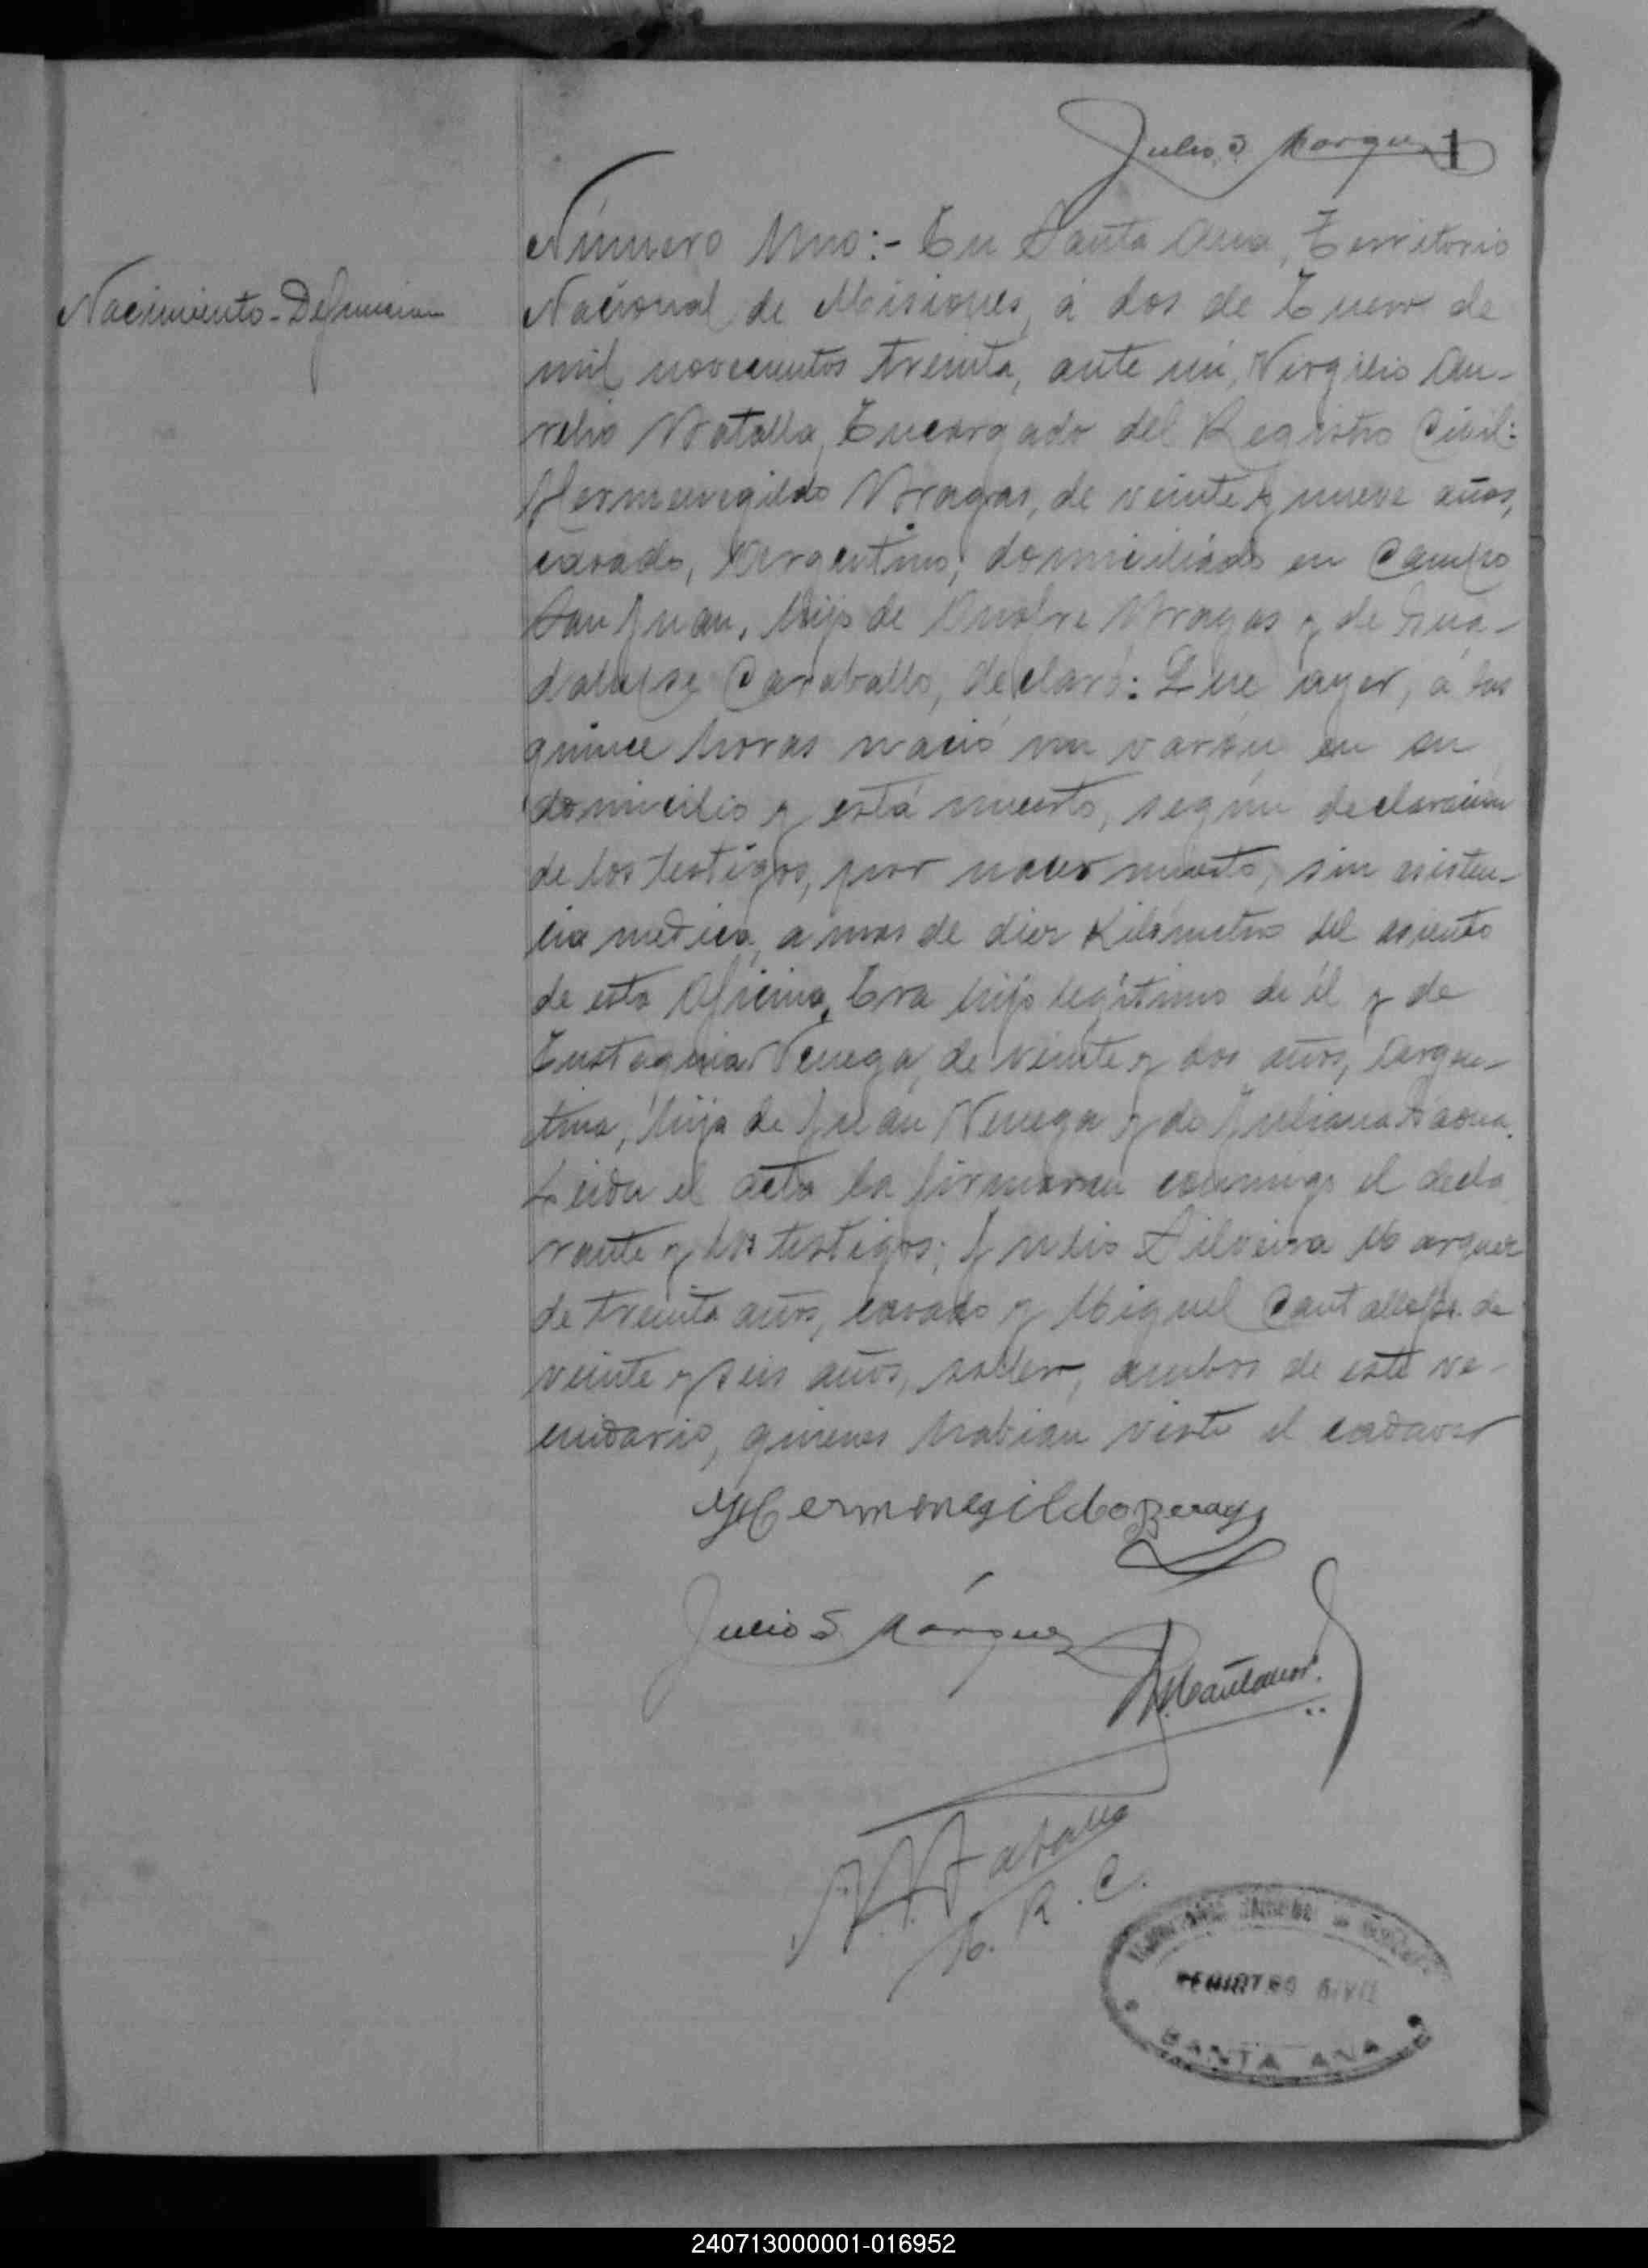 Julio S Marquez 1
Número Uno:- En Santa Ana, Territorio
Nacimiento-Defuncion
Nacional de Misiones, á dos de Enero de
mil novecientos treinta, ante mi, Virgilio Au-
relio Batalla, Encargado del Registro Civil:
Hermenegildo Bragas, de veinte y nueve años,
casado, Argentino, domiciliado en Campo
San Juan, hijo de Onofre Bragas y de Gua-
dalupe Caraballo, declaró: Que ayer, á las
quince horas nació un varón en su
domicilio y está muerto, según declaración
de los testigos, por nacer muerto, sin asisten-
cia medica, a mas de diez Kilómetros del asiento
de esta Oficina. Era hijo legítimo de él y de
Eustaquia Venega, de veinte y dos años, Argen-
tina, hija de Juan Venega y de Juliana
Leida el acta la firmaron conmigo el decla
rante y los testigos; Julio Silveira Marquez
de treinta años, casado y Miguel de
veinte y seis años, soltero, ambos de este ve-
cindario, quienes habian visto el cadaver
Hermenegildo Beragas
Julio S. Márquez
V. A. Batalla
E. R. C.
REGISTRO CIVIL
SANTA ANA
240713000001-016952